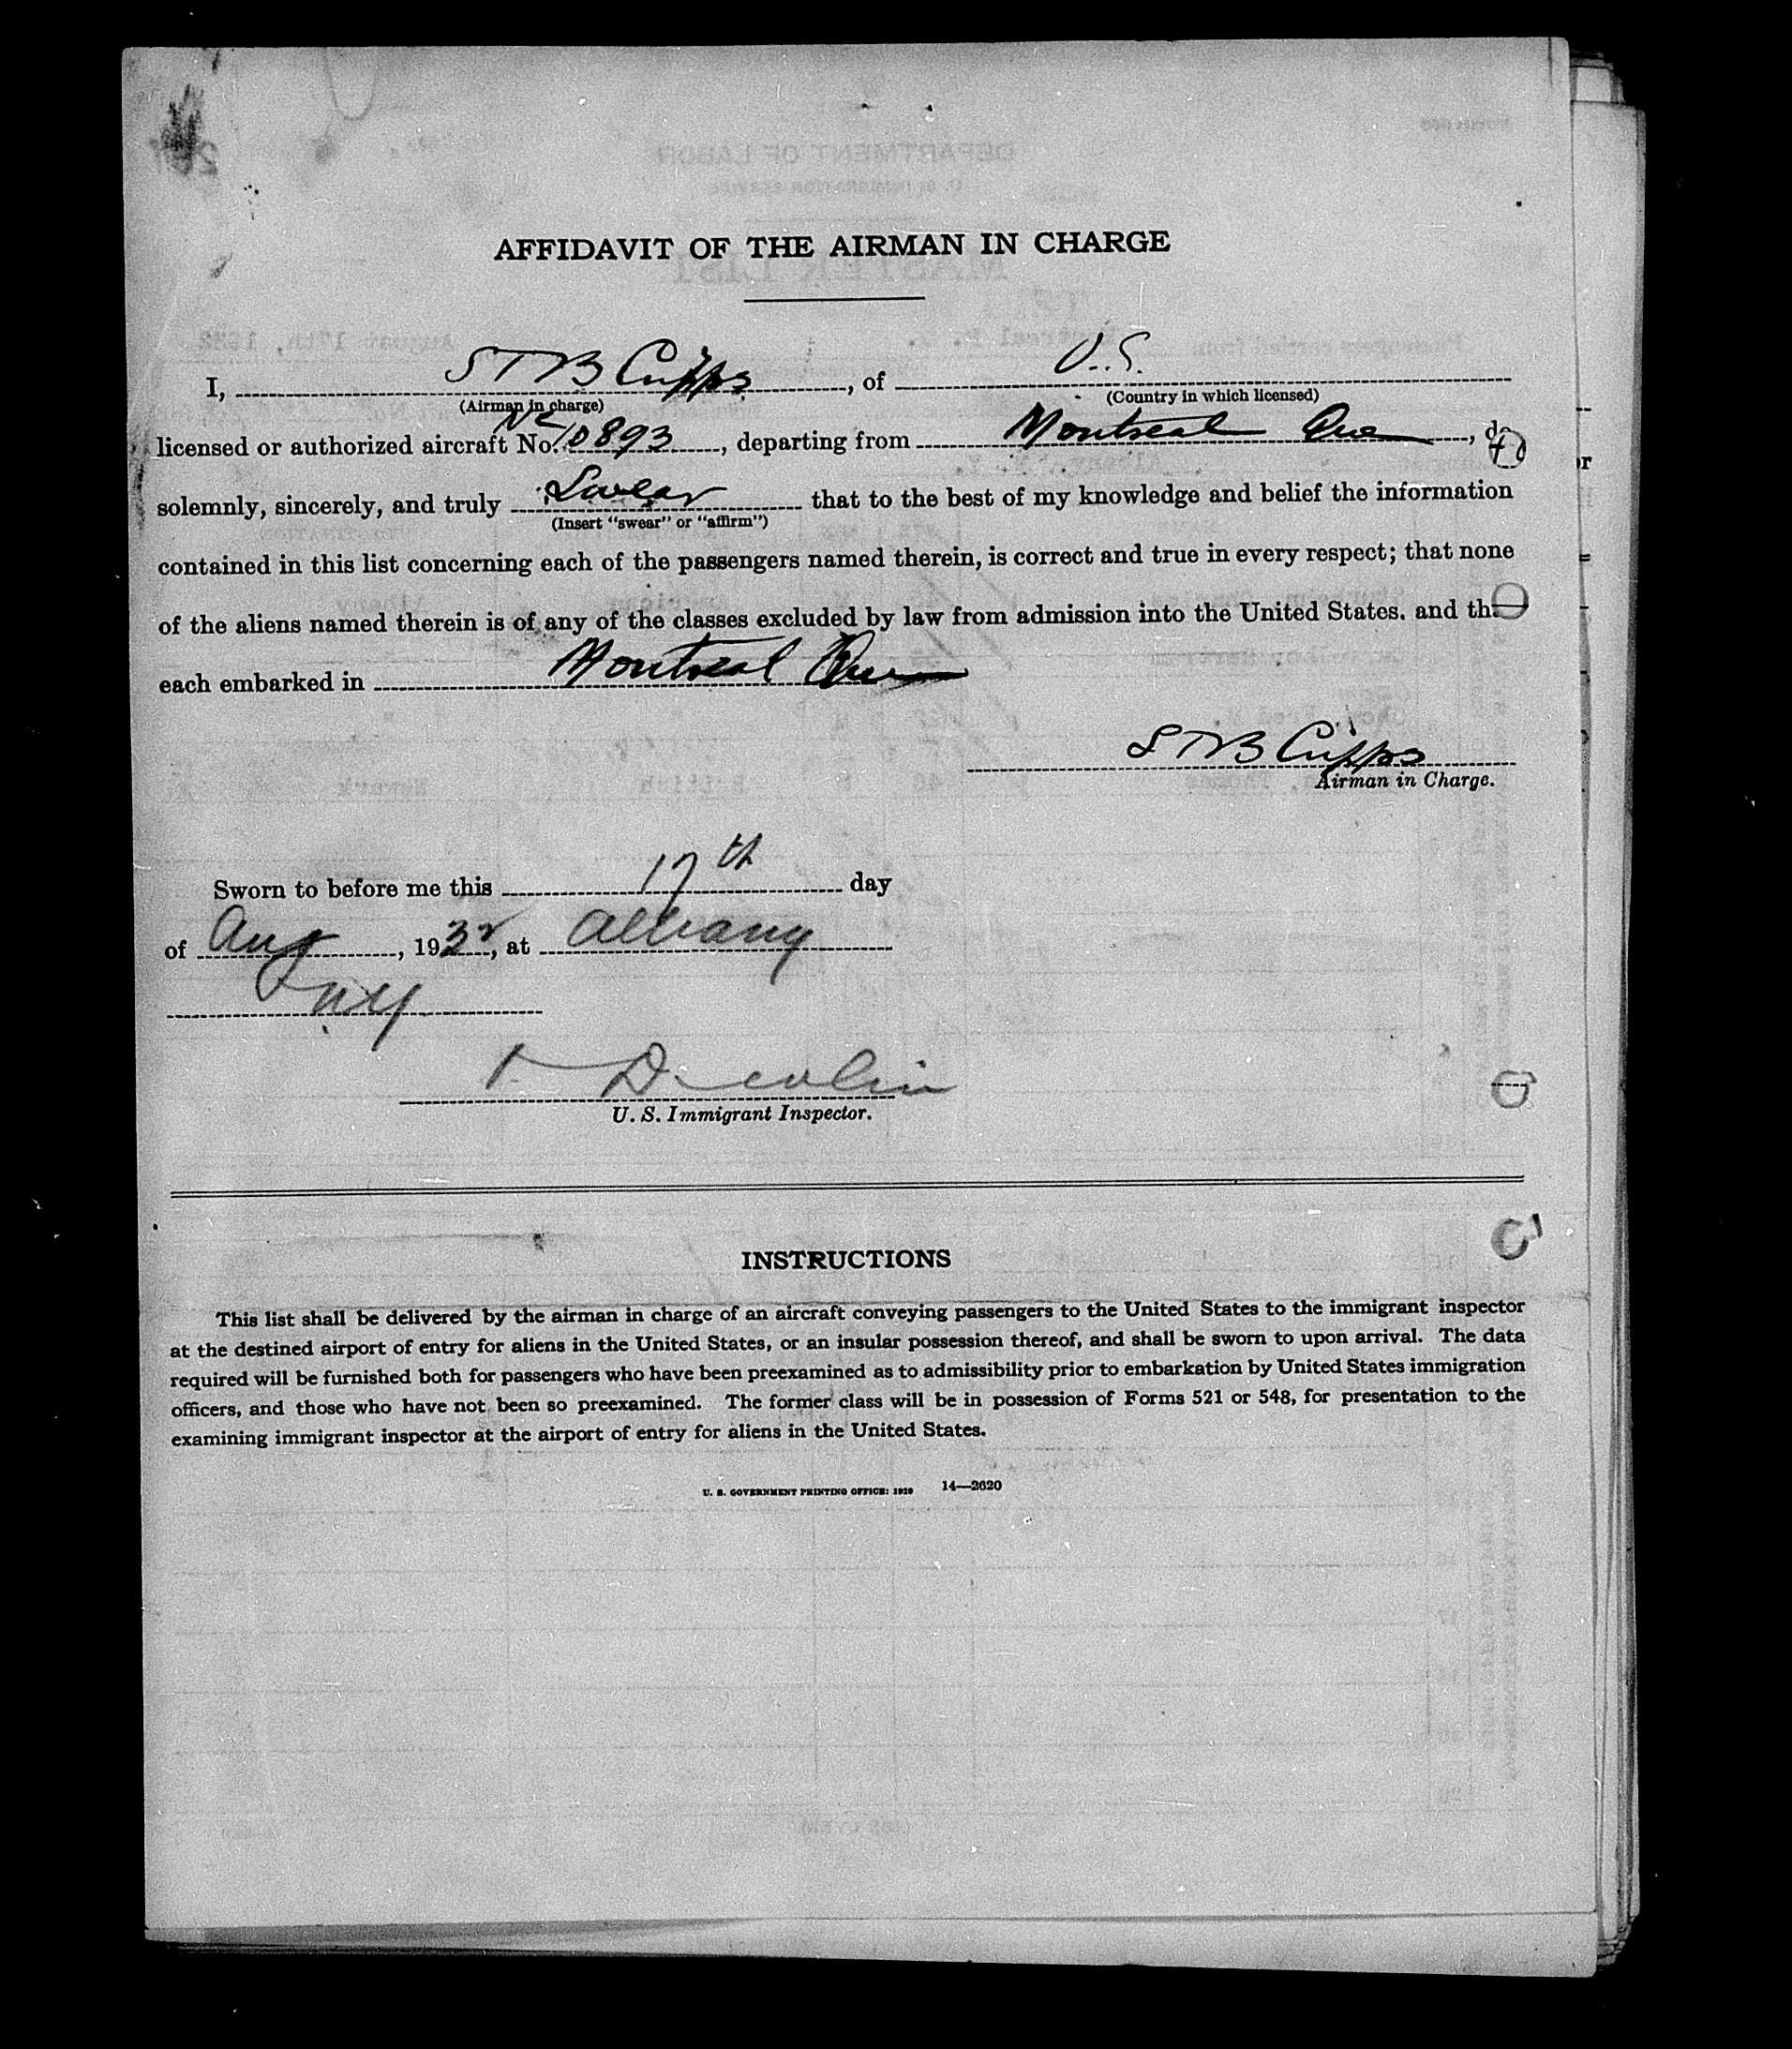 AFFIDAVIT OF THE AIRMAN IN CHARGE
I, S T B Cripps, of U.S.
(Airman in charge) (Country in which licensed)
licensed or authorized aircraft No. NC 10893, departing from Montreal Que, do
solemnly, sincerely, and truly Swear that to the best of my knowledge and belief the information
(Insert "swear" or "affirm")
contained in this list concerning each of the passengers named therein, is correct and true in every respect; that none
of the aliens named therein is of any of the classes excluded by law from admission into the United States. and th
each embarked in Montreal Que
S T B Cripps
Airman in Charge.
Sworn to before me this 17th day
of Aug, 1932, at Albany
NY
Devlin
U. S. Immigrant Inspector.
INSTRUCTIONS
This list shall be delivered by the airman in charge of an aircraft conveying passengers to the United States to the immigrant inspector
at the destined airport of entry for aliens in the United States, or an insular possession thereof, and shall be sworn to upon arrival. The data
required will be furnished both for passengers who have been preexamined as to admissibility prior to embarkation by United States immigration
officers, and those who have not been so preexamined. The former class will be in possession of Forms 521 or 548, for presentation to the
examining immigrant inspector at the airport of entry for aliens in the United States.
U. S. GOVERNMENT PRINTING OFFICE: 1929 14—2620